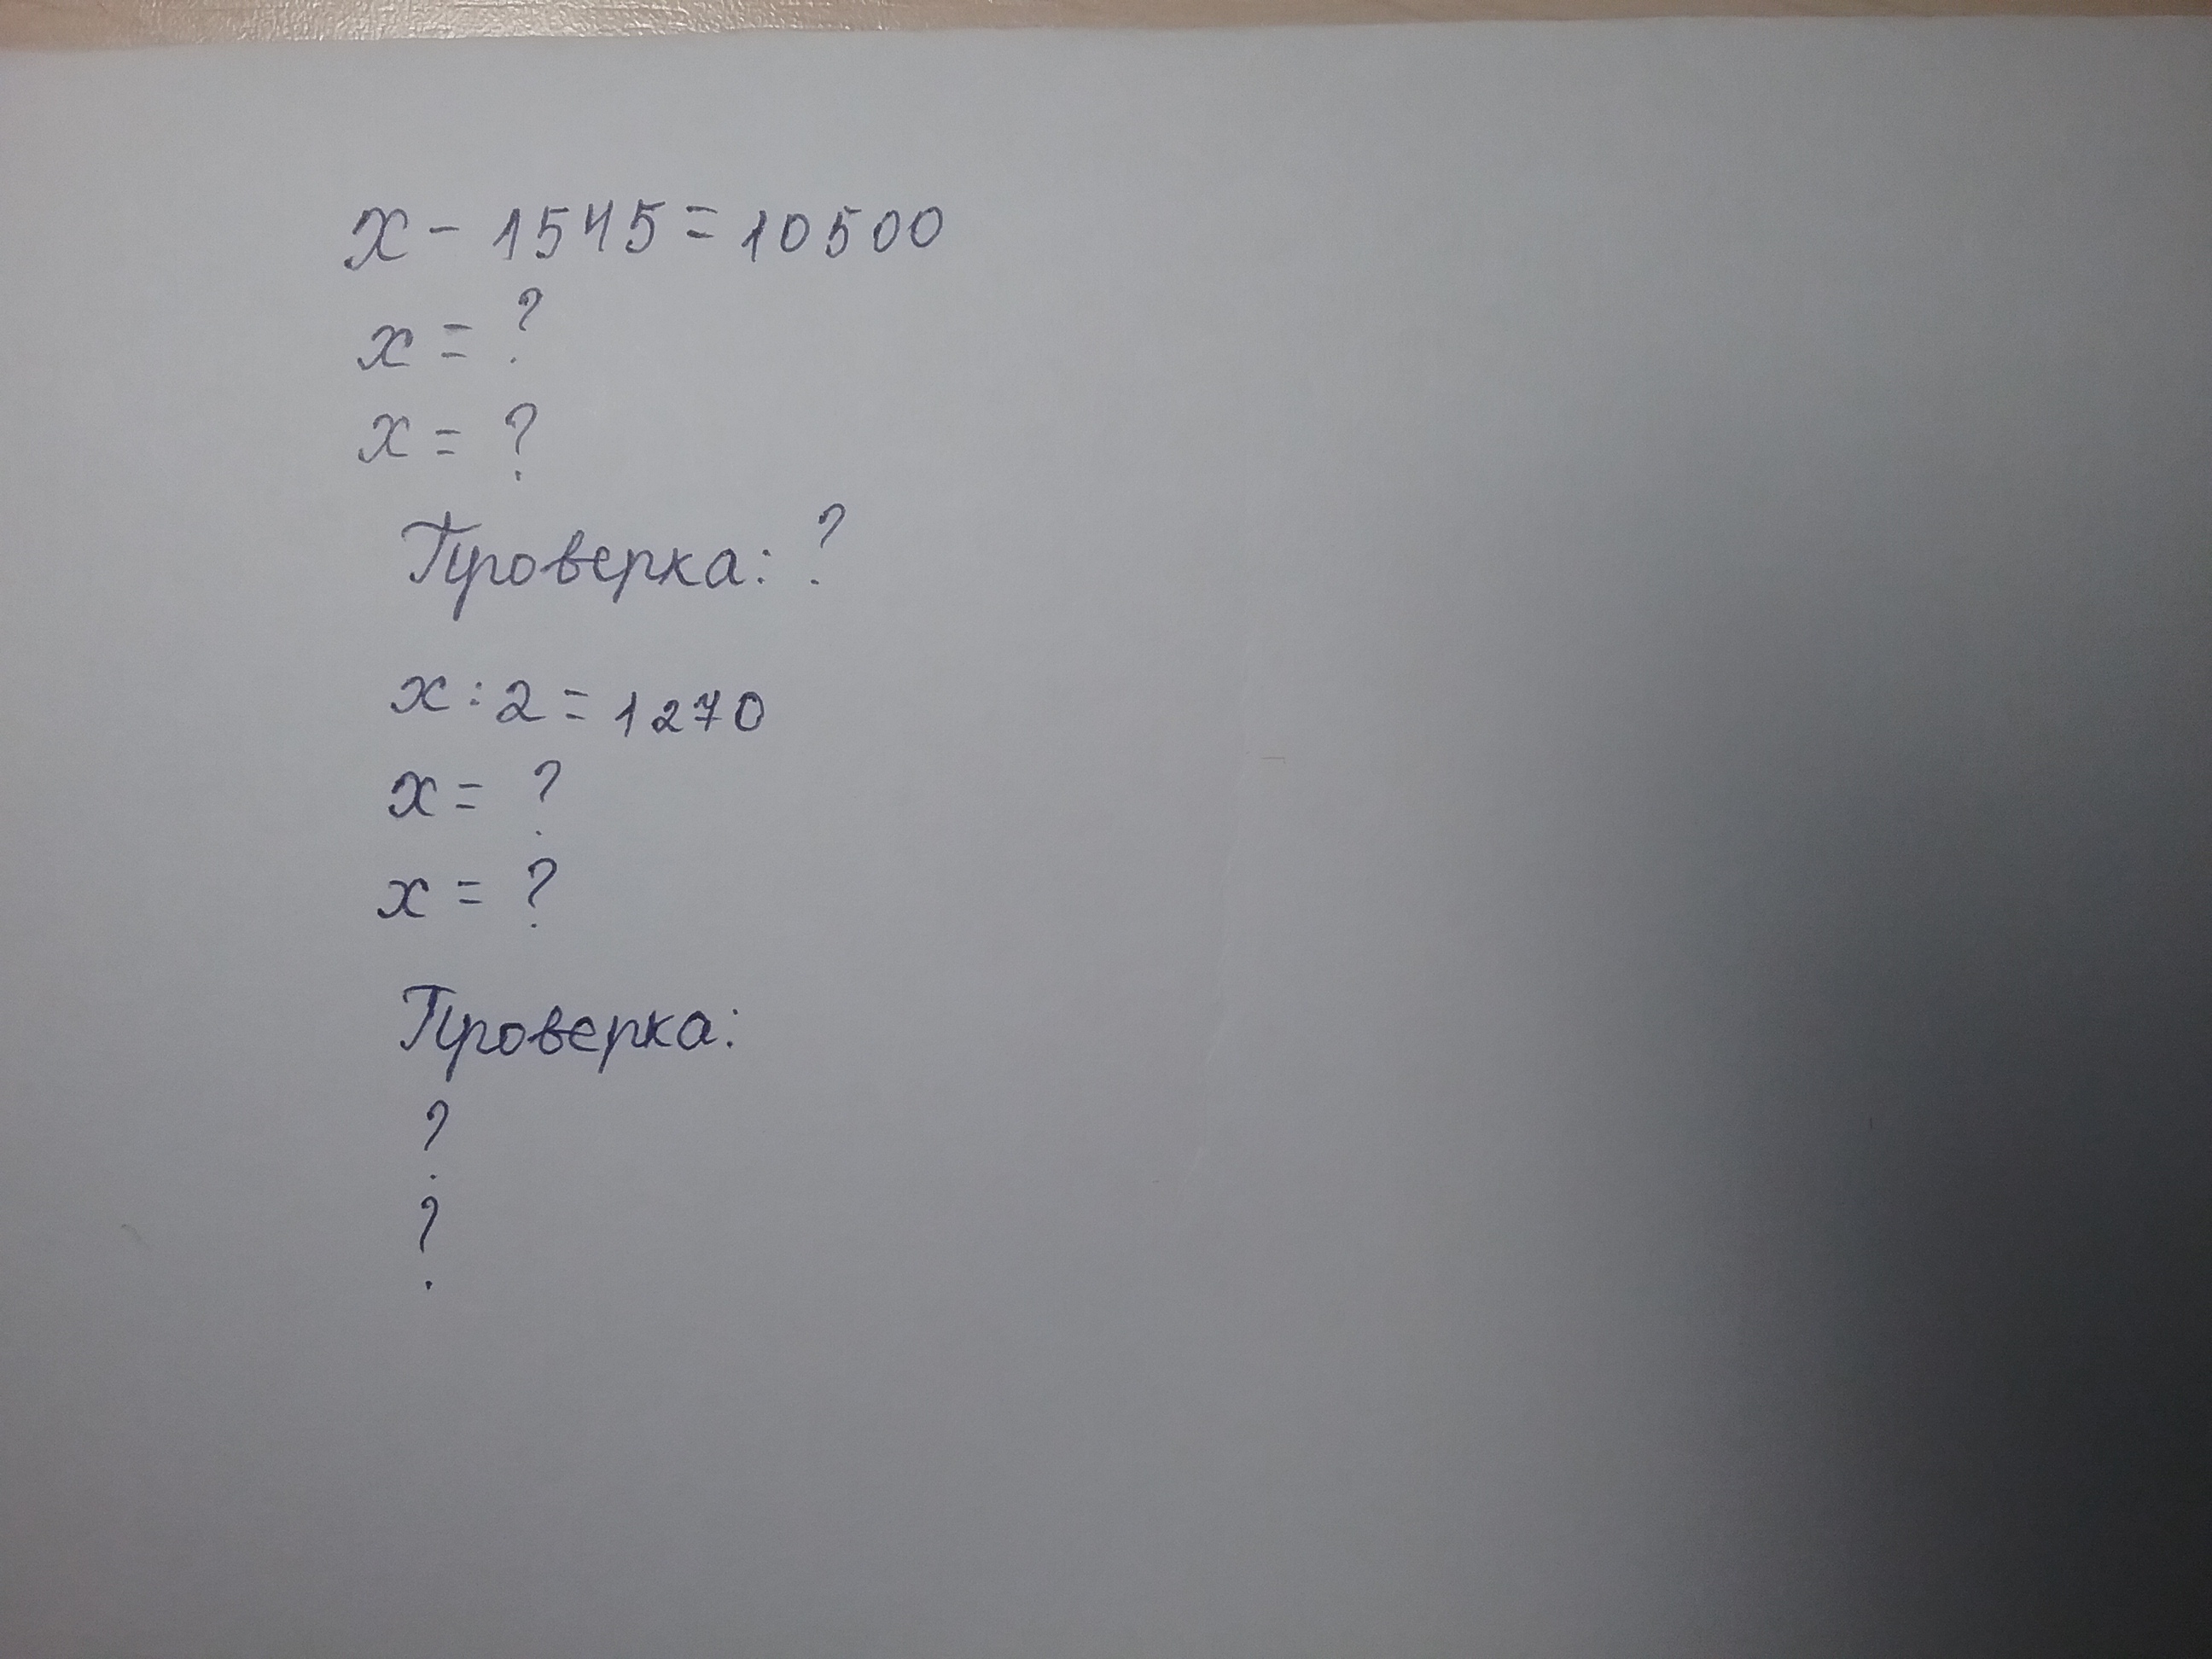 x - 1545 = 10500
x = ?
x = ?
Проверка: ?
x : 2 = 1270
x = ?
x = ?
Проверка:
?
?